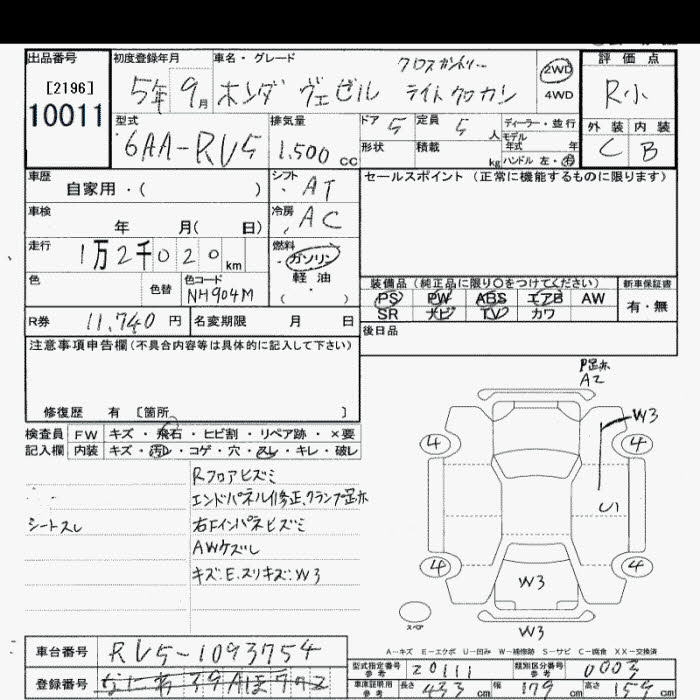 出品番号
[2196]
10011
初度登録年月
5年 9月
車名・グレード
クロスカントリー
ホンダ ヴェゼル ライトクロカン
2WD
4WD
評価点
R小
外装 内装
C B
型式
6AA-RV5
排気量
1,500 cc
ドア 5
定員 5 人
形状
積載 kg
ディーラー・並行
モデル
年式 年
ハンドル 左・右
車歴
自家用・( )
シフト
AT
セールスポイント (正常に機能するものに限ります)
車検
年 月( 日)
冷房
AC
走行
1万2千020km
燃料
ガソリン
軽油
( )
色
色替
色コード
NH904M
装備品 (純正品に限り○をつけてください)
新車保証書
PS PW ABS エアB AW
SR ナビ TV カワ
有・無
R券 11,740 円
名変期限 月 日
後日品
注意事項申告欄(不具合内容等は具体的に記入して下さい)
修復歴 有 [箇所 ]
検査員
記入欄
FW キズ・飛石・ヒビ割・リペア跡・×要
内装 キズ・汚レ・コゲ・穴・スレ・キレ・破レ
シートスレ
Rフロアヒズミ
エンドパネル修正、クランプ歪
右Fインパネヒズミ
AWケズレ
キズ:E.スリキズ:W3
A2
W3
4 4
U1
4 4
W3
スペア
W3
A-キズ E-エクボ U-凹み W-補修跡 S-サビ C-腐食 XX-交換済
車台番号 RV5-1093754
型式指定番号
参考
20111
類別区分番号
参考
0003
登録番号
車庫証明用
参考
長さ 433 cm 幅 179 cm 高さ 159 cm